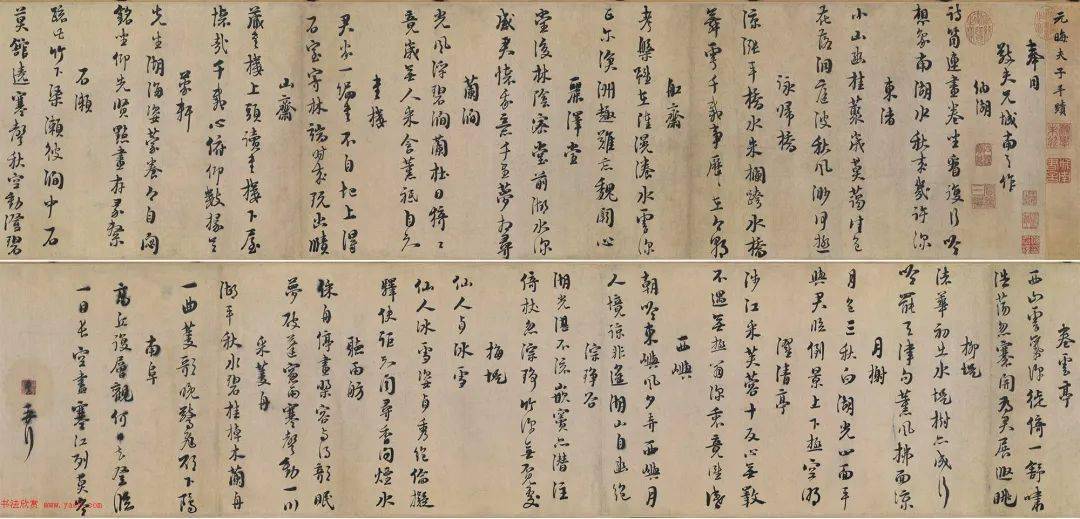 元晦夫子手蹟
奉同
敬夫兄城南之作
納湖
詩筒連畫卷坐看復行吟
想象南湖水秋來幾許深
東渚
小山幽桂叢歲莫藹佳色
花落洞庭波秋風渺何極
詠歸橋
綠漲平橋水朱欄跨水橋
舞雩千載事歷歷在今朝
船齋
考槃雖在陸滉瀁水雲深
正爾滄洲趣難忘魏闕心
麗澤堂
堂後林陰密堂前湖水深
感君懷我意千里夢相尋
蘭澗
光風浮碧澗蘭杜日猗猗
竟歲無人采含薰祇自知
書樓
君家一編書不自圯上得
石室寄林端時來玩幽賾
山齋
藏書樓上頭讀書樓下屋
懷哉千載心俯仰數椽足
蒙軒
先生湖海姿蒙養今自閟
銘坐仰先賢點畫存彖繫
石瀨
疏此竹下渠瀨彼澗中石
莫館遶寒聲秋空動澄碧
卷雲亭
西山雲氣深徙倚一舒嘯
浩蕩忽褰開為君展遐眺
柳堤
渚華初出水堤樹亦成行
吟罷天津句薰風拂面涼
月榭
月色三秋白湖光四面平
與君臨倒景上下極空明
濯清亭
涉江采芙蓉十反心無斁
不遇無極翁深衷竟誰識
西嶼
朝吟東嶼風夕弄西嶼月
人境諒非遙湖山自幽絕
淙琤谷
湖光湛不流嵌竇亦潛注
倚杖忽淙琤竹深無覓處
梅堤
仙人冰雪
仙人冰雪姿貞秀絕倫擬
驛使詎知聞尋香問煙水
聽雨舫
綵舟停畫槳容與得欹眠
夢破蓬窗雨寒聲動一川
采菱舟
湖平秋水碧桂棹木蘭舟
一曲菱歌晚驚飛欲下鷗
南阜
高丘復層觀何日去登臨
一目長空盡寒江列莫岑
书法欣赏